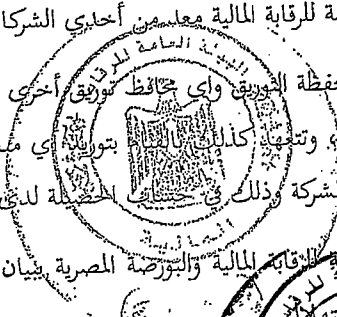 ة للرقابة المالية معد من أحدى الشركا
حفظة التوريق واي محافظ توريق أخرى
، وتتعهد كذلك بالقيام بتوريد أي
لشركة وذلك في حساب الحصيلة لدى
ة للرقابة المالية والبورصة المصرية ببيان
الهيئة العامة للرقابة
المالية